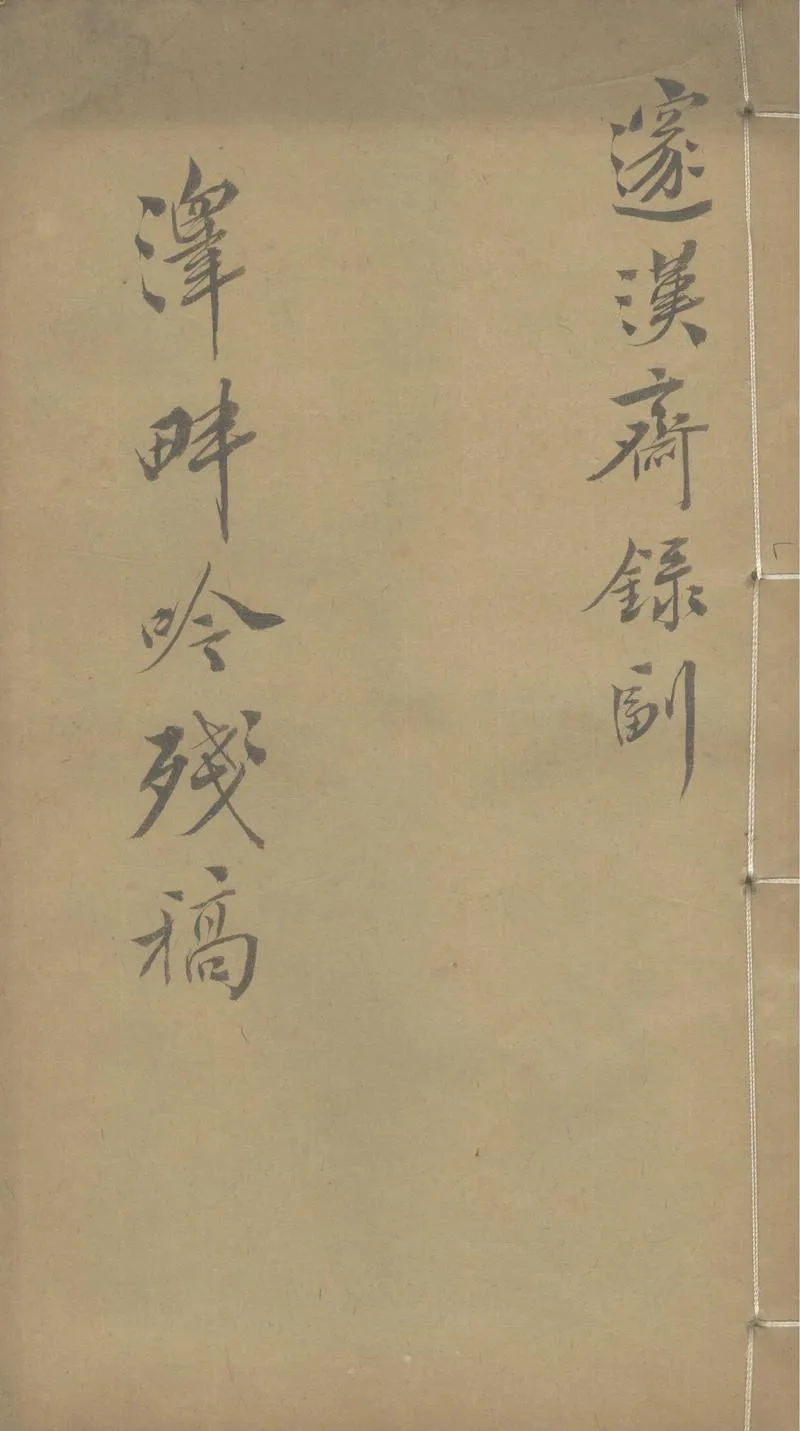 邃漢齋録副
澤畔吟殘稿